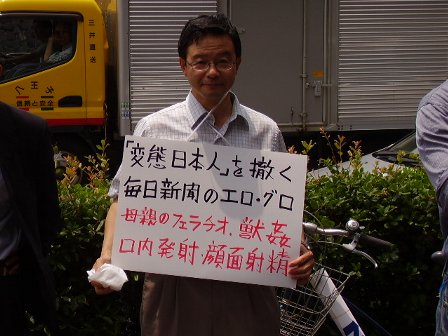 三井直送
八王子
信頼と安全
「変態日本人」を撒く
毎日新聞のエロ・グロ
母親のフェラチオ、獣姦
口内発射 顔面射精